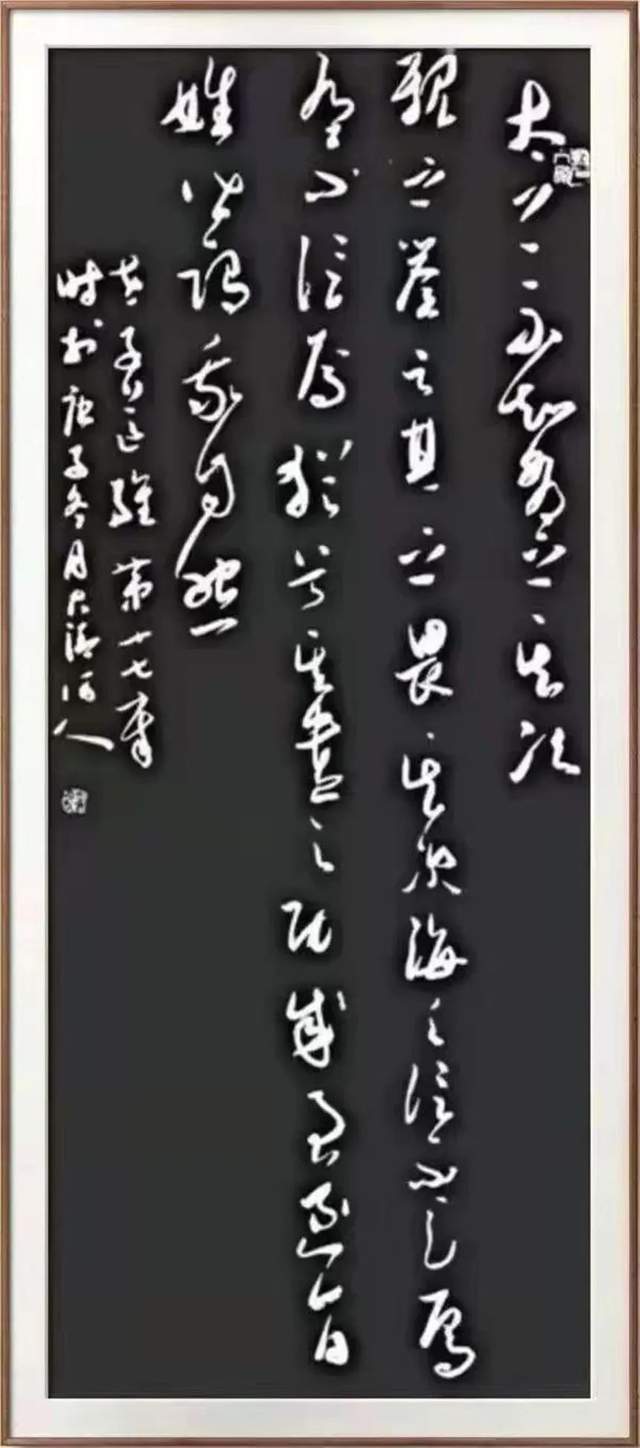 太上不知有之其次
親之誉之其次畏之其次侮之信不足焉
有不信焉犹兮其貴言功成事遂百
姓皆謂我自然
老子道經第十七章
时于庚子冬月清河人